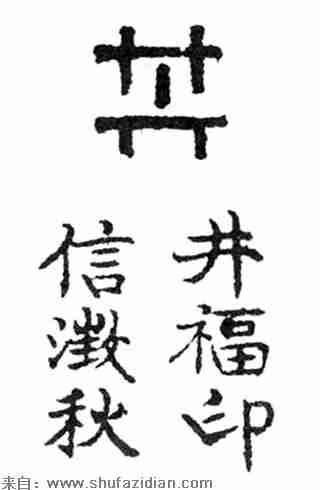 丼
井福印
信澂秋
来自：www.shufazidian.com